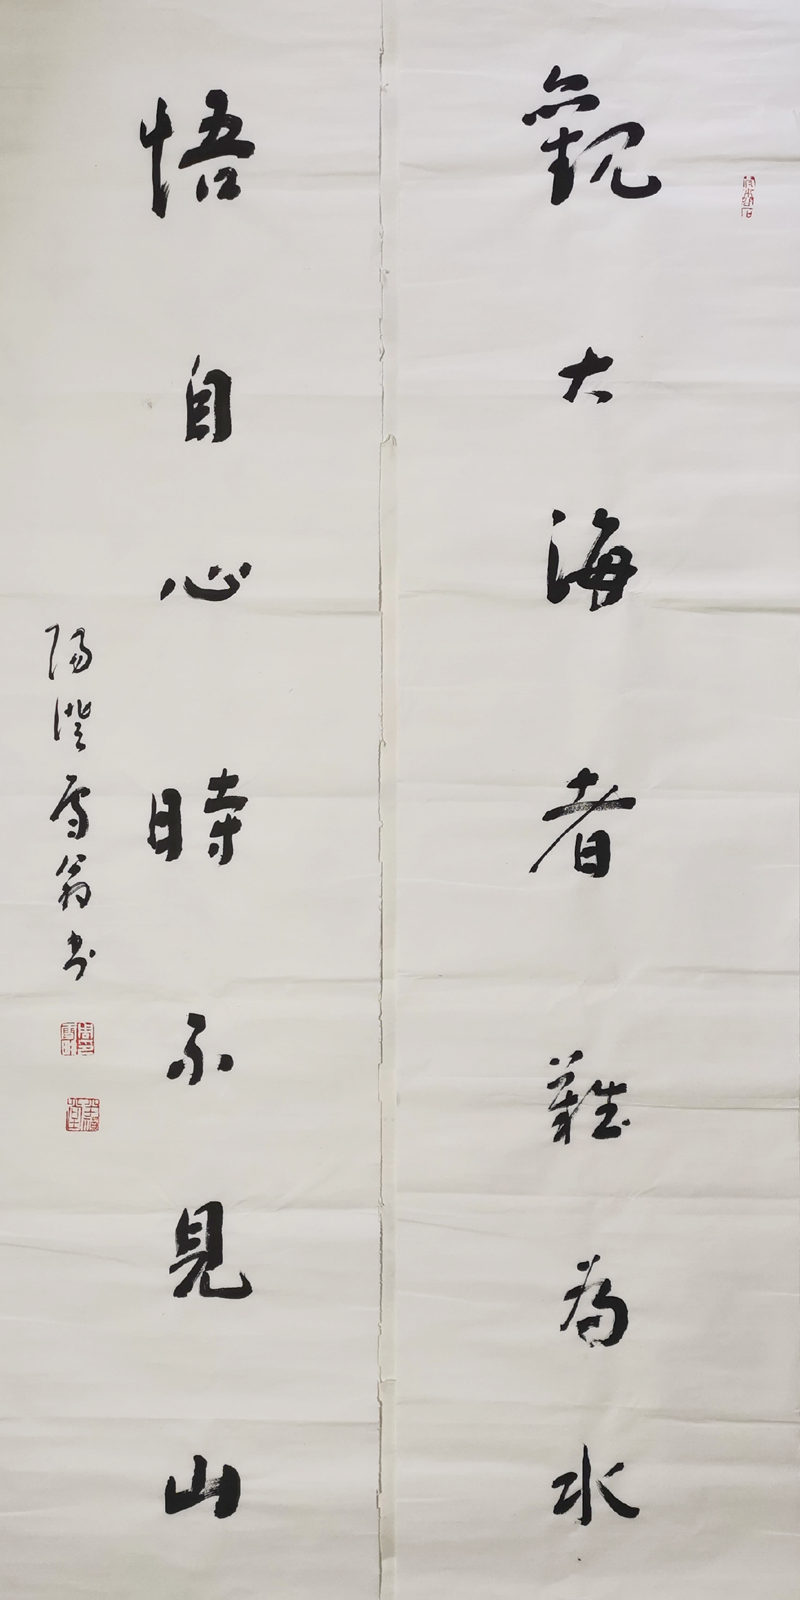 觀大海者難為水
悟自心時不見山
陽澄雪翁书